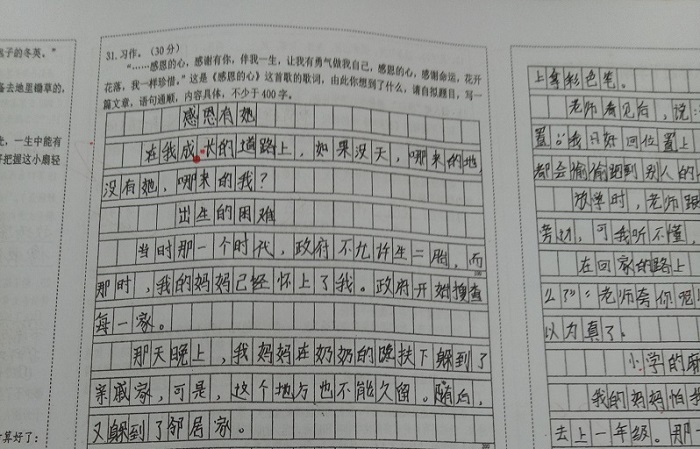 包子的冬英。"
备去地里锄草的,
光,一生中能有
好把握这小扇轻
计算好了:
31. 习作。(30 分)
"……感恩的心,感谢有你,伴我一生,让我有勇气做我自己,感恩的心,感谢命运,花开
花落,我一样珍惜。"这是《感恩的心》这首歌的歌词,由此你想到了什么,请自拟题目,写一
篇文章,语句通顺,内容具体,不少于 400 字。
感恩有她
在我成长的道路上,如果没天,哪来的地,
没有她,哪来的我?
出生的困难
当时那一个时代,政府不允许生二胎,而
那时,我的妈妈已经怀上了我。政府开始搜查
每一家。
那天晚上,我妈妈在奶奶的搀扶下躲到了
亲戚家,可是,这个地方也不能久留。随后,
又躲到了邻居家。
上拿彩色笔。
老师看见后,说:
置。"我只好回位置上
都会偷偷跑到别人的
放学时,老师跟
旁边,可我听不懂,
在回家的路上
么了?":老师夸你呢
以为真了。
小学的麻
我的妈妈怕我
去上一年级。那一